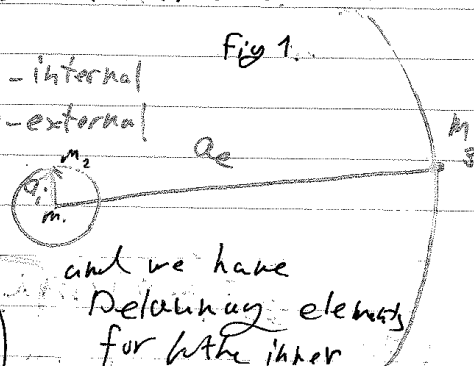 Fig 1.
- internal
- external
m₂
aₑ
m₃
aᵢ
m₁
and we have
Delaunay elements
for the inner